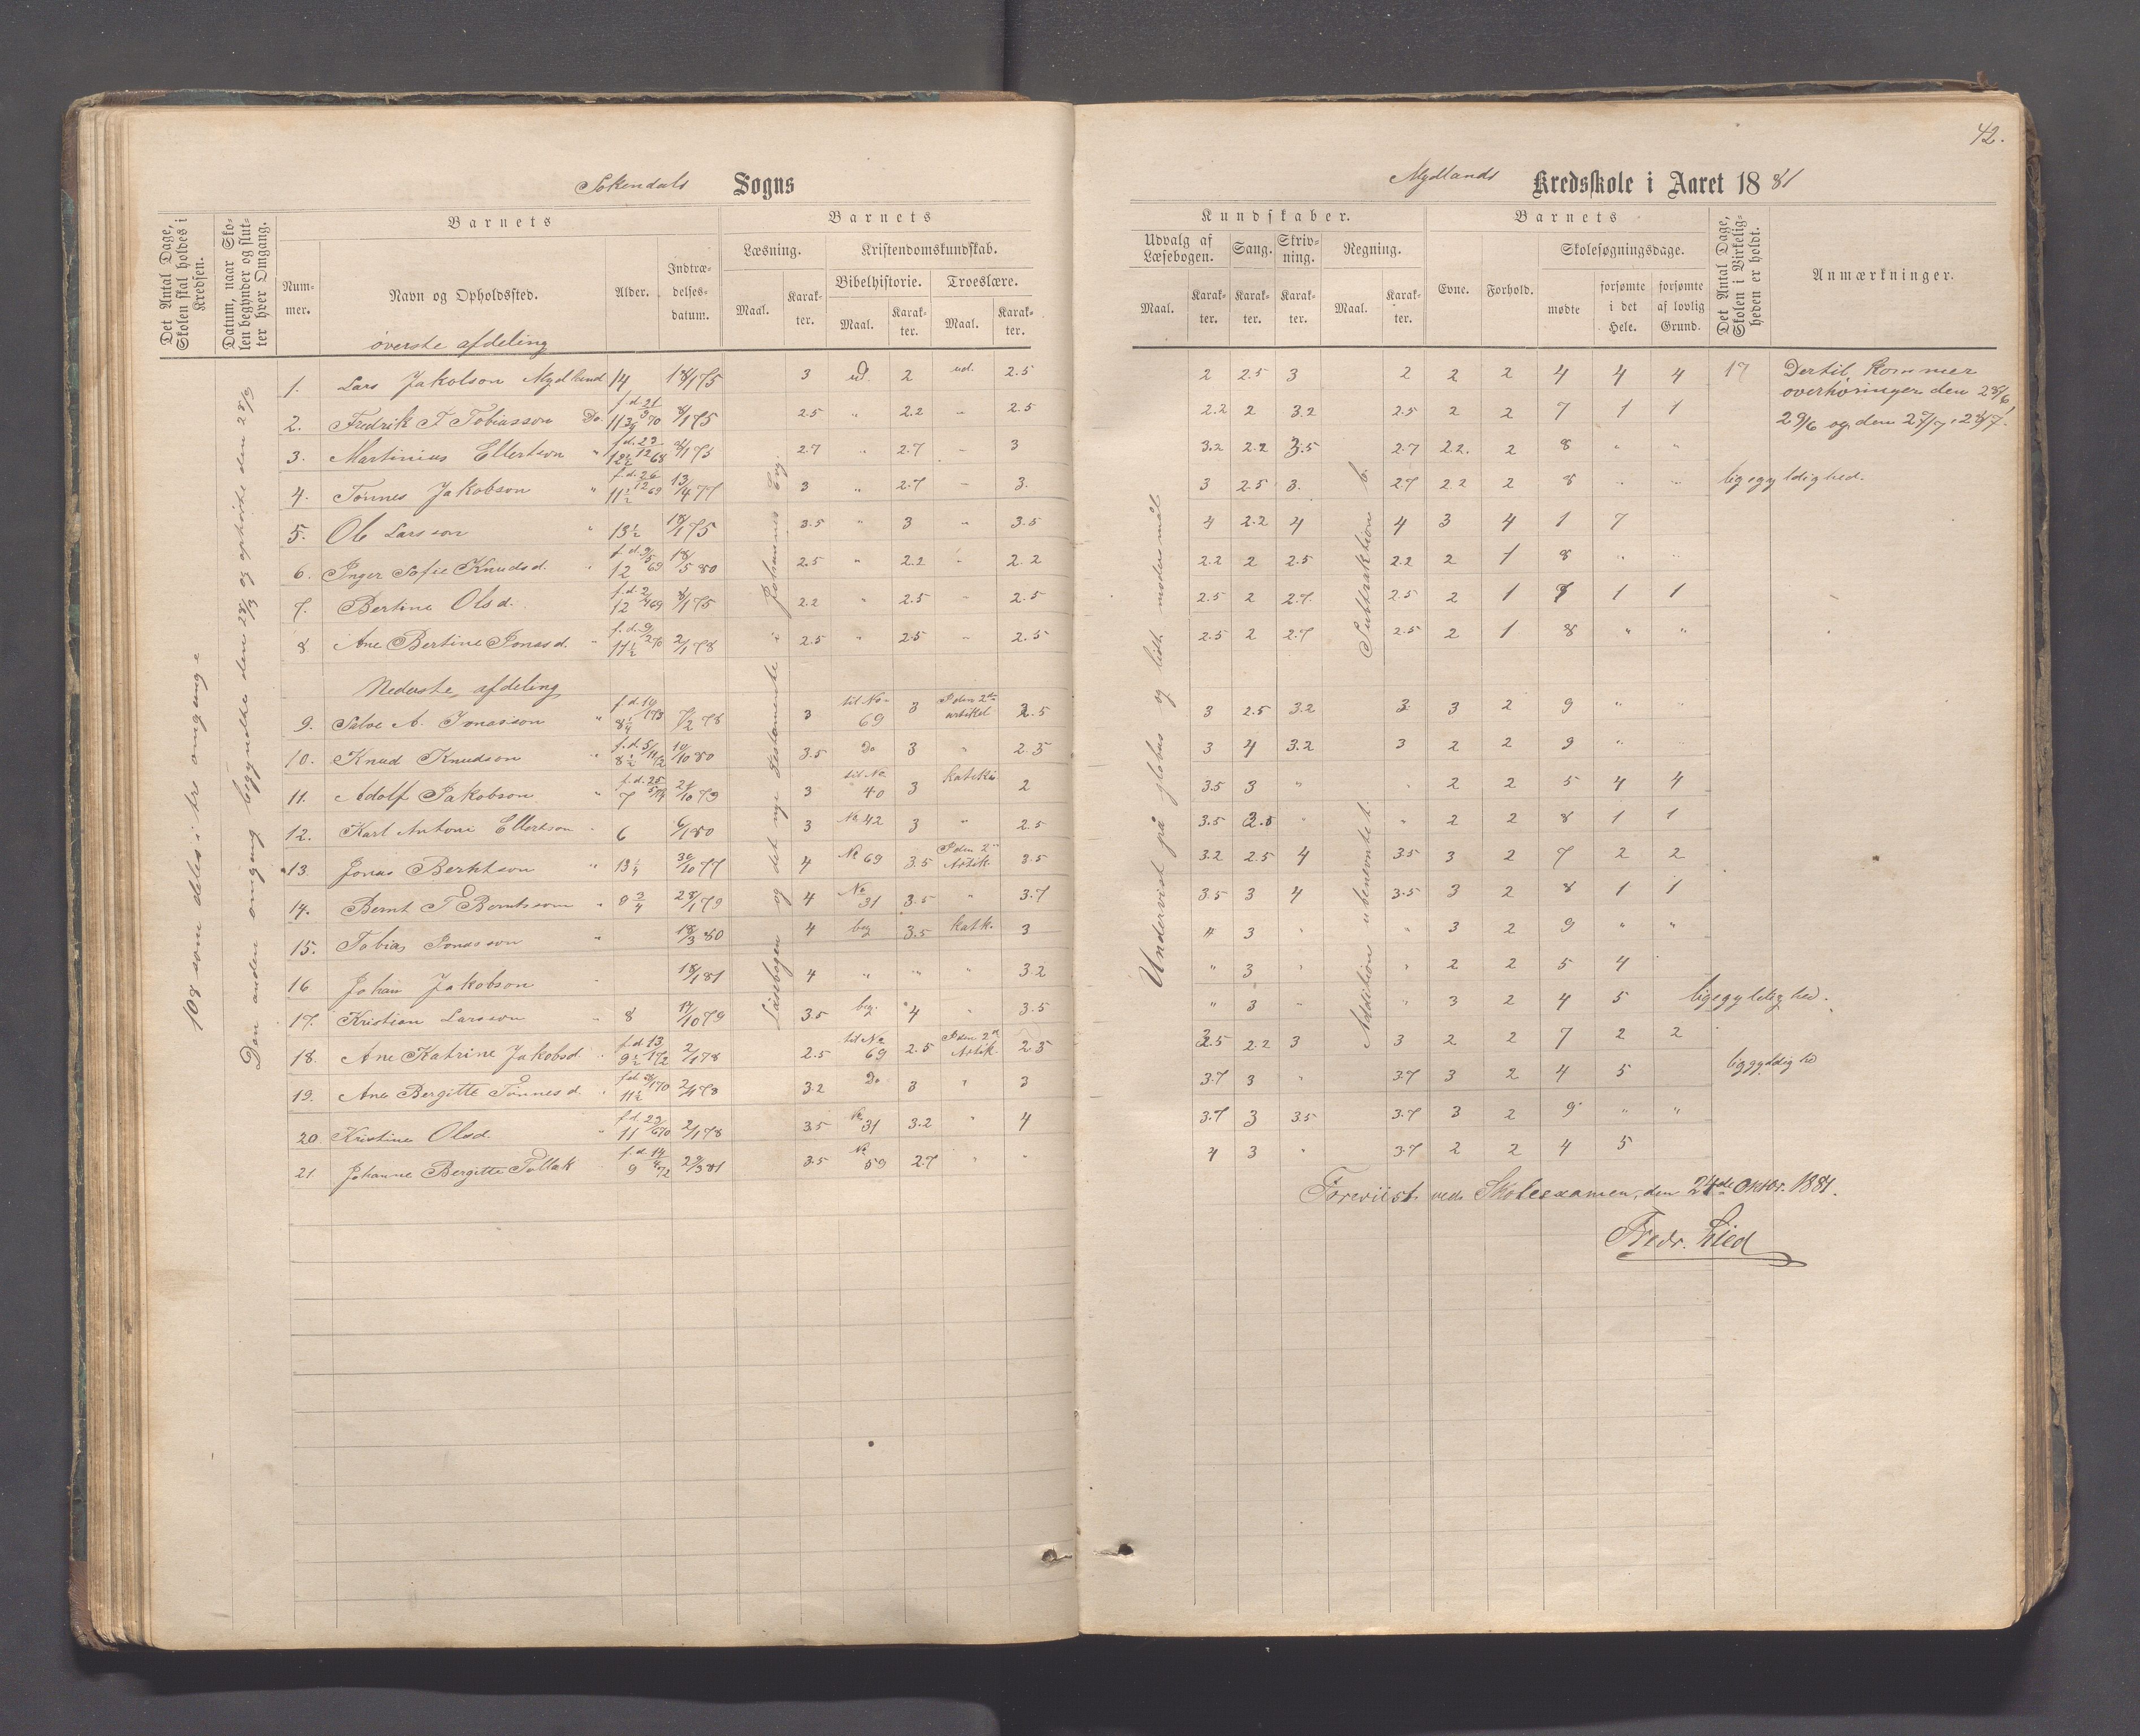 42.
Sokendals Sogns
Mydlands Kredsskole i Aaret 1881
Det Antal Dage, Skolen skal holdes i Kredsen.
Datum, naar Skolen begynder og slutter hver Omgang.
Barnets
Nummer.
Navn og Opholdssted.
Alder.
Indtrædelsesdatum.
Barnets
Læsning.
Maal.
Karakter.
Kristendomskundskab.
Bibelhistorie.
Maal.
Karakter.
Troeslære.
Maal.
Karakter.
Kundskaber.
Udvalg af Læsebogen.
Maal.
Karakter.
Sang.
Karakter.
Skrivning.
Karakter.
Regning.
Maal.
Karakter.
Barnets
Evne.
Forhold.
Skolesøgningsdage.
mødte
forsømte i det Hele.
forsømte af lovlig Grund.
Det Antal Dage, Skolen i Virkeligheden er holdt.
Anmærkninger.
108 som deles i tre omgange
Den anden omgang begyndte den 28/3 og ophørte den 28/9
Læsebogen og det nye Testamente i Johannes Evg.
Undervist på globus og lidt modersmål
Addition ubenevntet. Subtraktion b.
øverste afdeling
1. Lars Jakobson Mydland 14 18/1 75 3 ud. 2 ud. 2.5 2 2.5 3 2 2 2 4 4 4 17 Dertil kommer
overhøringer den 28/6
2. Fredrik T Tobiasson Do 18/1 75 2.5 " 2.2 " 2.5 2.2 2 3.2 2.5 2 2 7 1 1 29/6 og den 27/7, 28/7.
3. Martinius Ellertson " 18/1 75 2.7 " 2.7 " 3 3.2 2.2 3.5 2.7 2.2. 2 8 " "
4. Tønnes Jakobson " 11 1/2 13/4 77 3 " 2.7 " 3. 3 2.5 3. 2.7 2.2 2 8 " " ligegyldighed.
5. Ole Larsson " 13 1/2 18/1 75 3.5 " 3 " 3.5 4 2.2 4 4 3 4 1 7
6. Inger Sofie Knudsd. " 12 18/5 80 2.5 " 2.2 " 2.2 2.2 2 2.5 2.2 2 1 8 " "
7. Bertine Olsd. 12 18/1 75 2.2 " 2.5 " 2.5 2.5 2 2.7 2.5 2 1 7 1 1
8 Ane Bertine Jonasd. " 11 1/2 2/1 78 2.5 " 2.5 " 2.5 2.5 2 2.7 2.5 2 1 8 " "
Nederste afdeling
9. Salve A. Jonasson " 3 til No 69 3 I den 2den artikel 2.5 3 2.5 3.2 3 3 2 9 " "
10. Knud Knudson " 8 1/2 10/10 80 3.5 Do 3 " 2.5 3 4 3.2 3 2 2 9 " "
11. Adolf Jakobson " 7 21/10 79 3 til No 40 3 2 3.5 3 " " 2 2 5 4 4
12. Karl Antoni Ellertson " 6 6/1 80 3 No 42 3 " 2.5 3.5 2.5 " " 2 2 8 1 1
13. Jonas Berntson " 30/10 77 4 No 69 3.5 I den 2den Artik. 3.5 3.2 2.5 4 3.5 3 2 7 2 2
14. Bernt T Berntsson " 9 3/4 28/1 79 4 No 31 3.5 " 3.7 3.5 3 4 3.5 3 2 8 1 1
15. Tobias Jonasson " 18/3 80 4 beg 3.5 Katk. 3 " 3 " " 3 2 9 " "
16 Johan Jakobson " 18/1 81 4 " " " 3.2 " 3 " " 2 2 5 4
17. Kristian Larsson " 8 17/10 79 3.5 beg. 4 " 3.5 " 3 " " 3 2 4 5 ligegyldighed.
18. Ane Katrine Jakobsd. " 9 1/2 2/1 78 2.5 til No 69 2.5 I den 2den Artik. 2.5 3.5 2.2 3 3 2 2 7 2 2
19. Ane Bergitte Tønnesd. " 11 1/2 3.2 Do 3 " 3 3.7 3 " 3.7 3 2 4 5
20. Kristine Olsd. " 11 2/1 78 3.5 No 31 3.2 " 4 3.7 3 3.5 3.7 3 2 9 " "
21 Johanne Bergitte 9 29/3 81 3.5 No 59 2.7 " " 4 3 " 3.7 2 2 4 5
Foreviist ved Skoleexamen, den 24de Oktbr. 1881.
Fredr. Lied